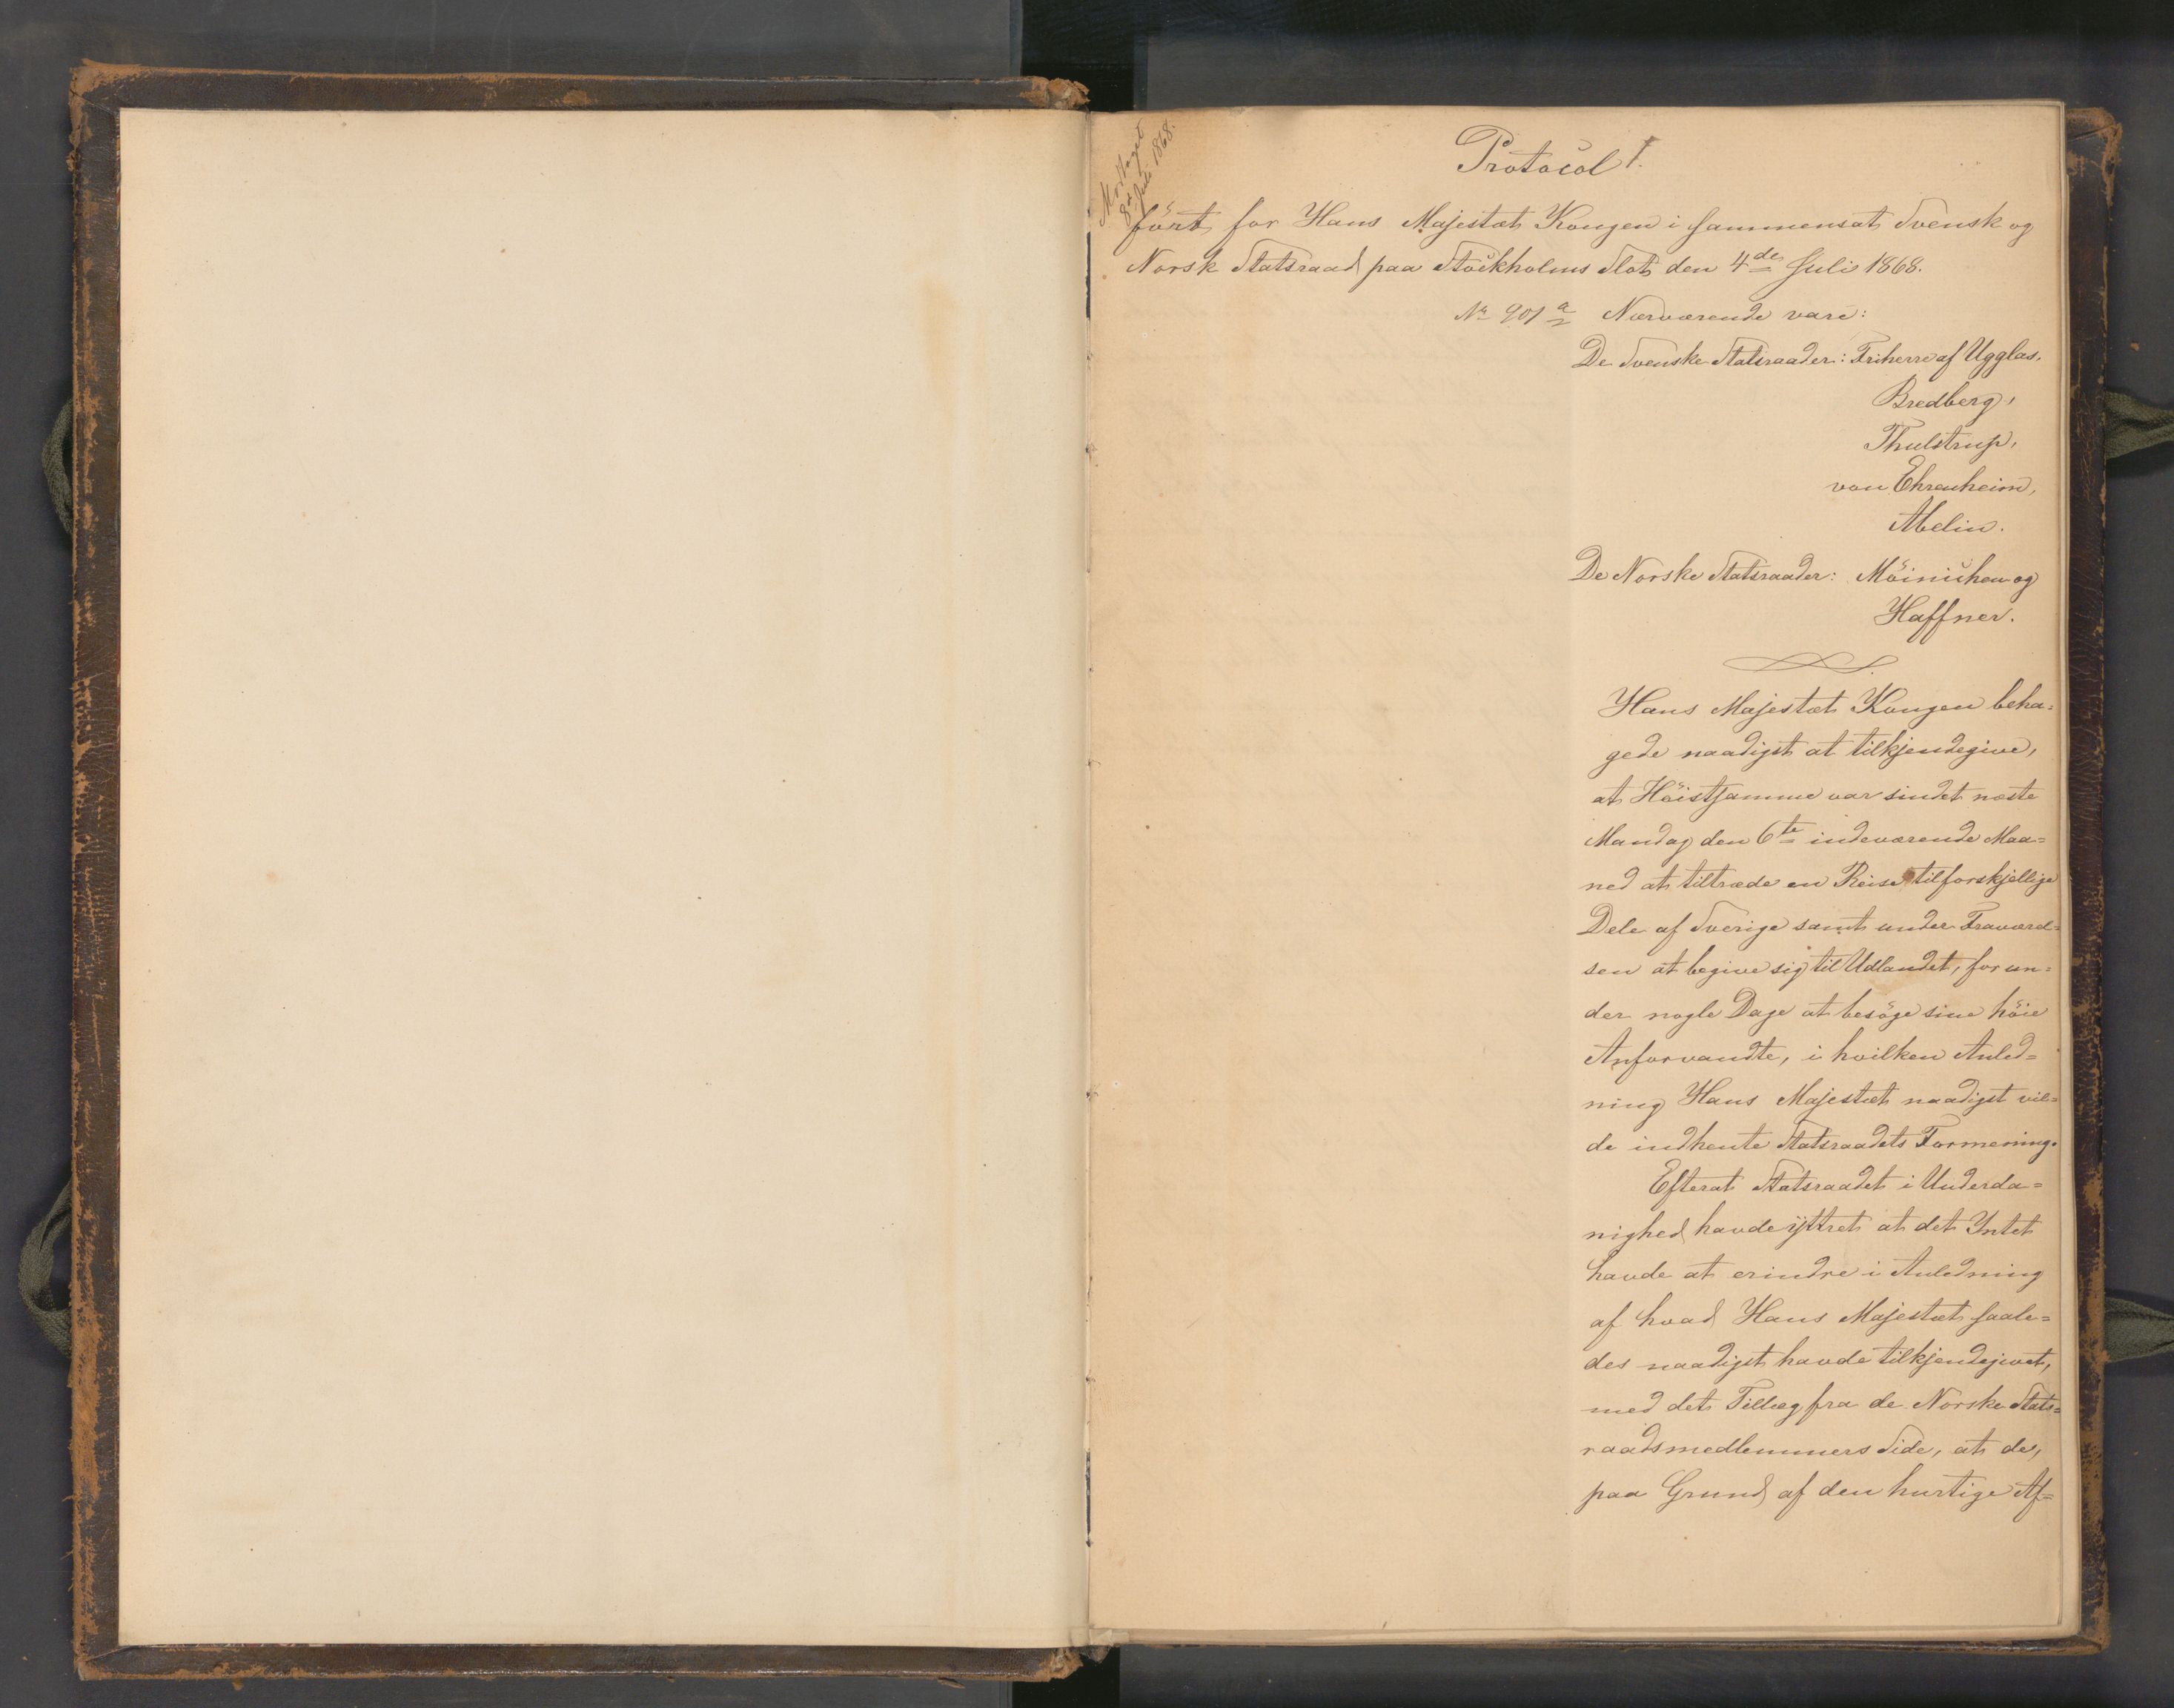 Modtaget
8de Juli 1868.
Protocol 1.
fört for Hans Majestæt Kongen i sammensat Svensk og
Norsk Statsraad paa Stockholms Slot den 4de Juli 1868.
No 901 a Nærværende vare:
De Svenske Statsraader: Friherre af Ugglas,
Bredberg,
Thulstrup,
von Ehrenheim,
Abelin.
De Norske Statsraader: Möinichen og
Haffner.
Hans Majestæt Kongen beha=
gede naadigst at tilkjendegive,
at Höistsamme var sindet næste
Mandag den 6te indeværende Maa=
ned at tiltræde en Reise til forskjellige
Dele af Sverige samt under Fraværel=
sen at begive sig til Udlandet, for un=
der nogle Dage at besöge sine höie
Anforvandte, i hvilken Anled=
ning Hans Majestæt naadigst vil=
de indhente Statsraadets Formening.
Efterat Statsraadet i Underda=
nighed havde ÿttret at det Intet
havde at erindre i Anledning
af hvad Hans Majestæt saale=
des naadigst havde tilkjendegivet,
med det Tillæg fra de Norske Stats=
raadsmedlemmers Side, at de,
paa Grund af den hurtige Af=